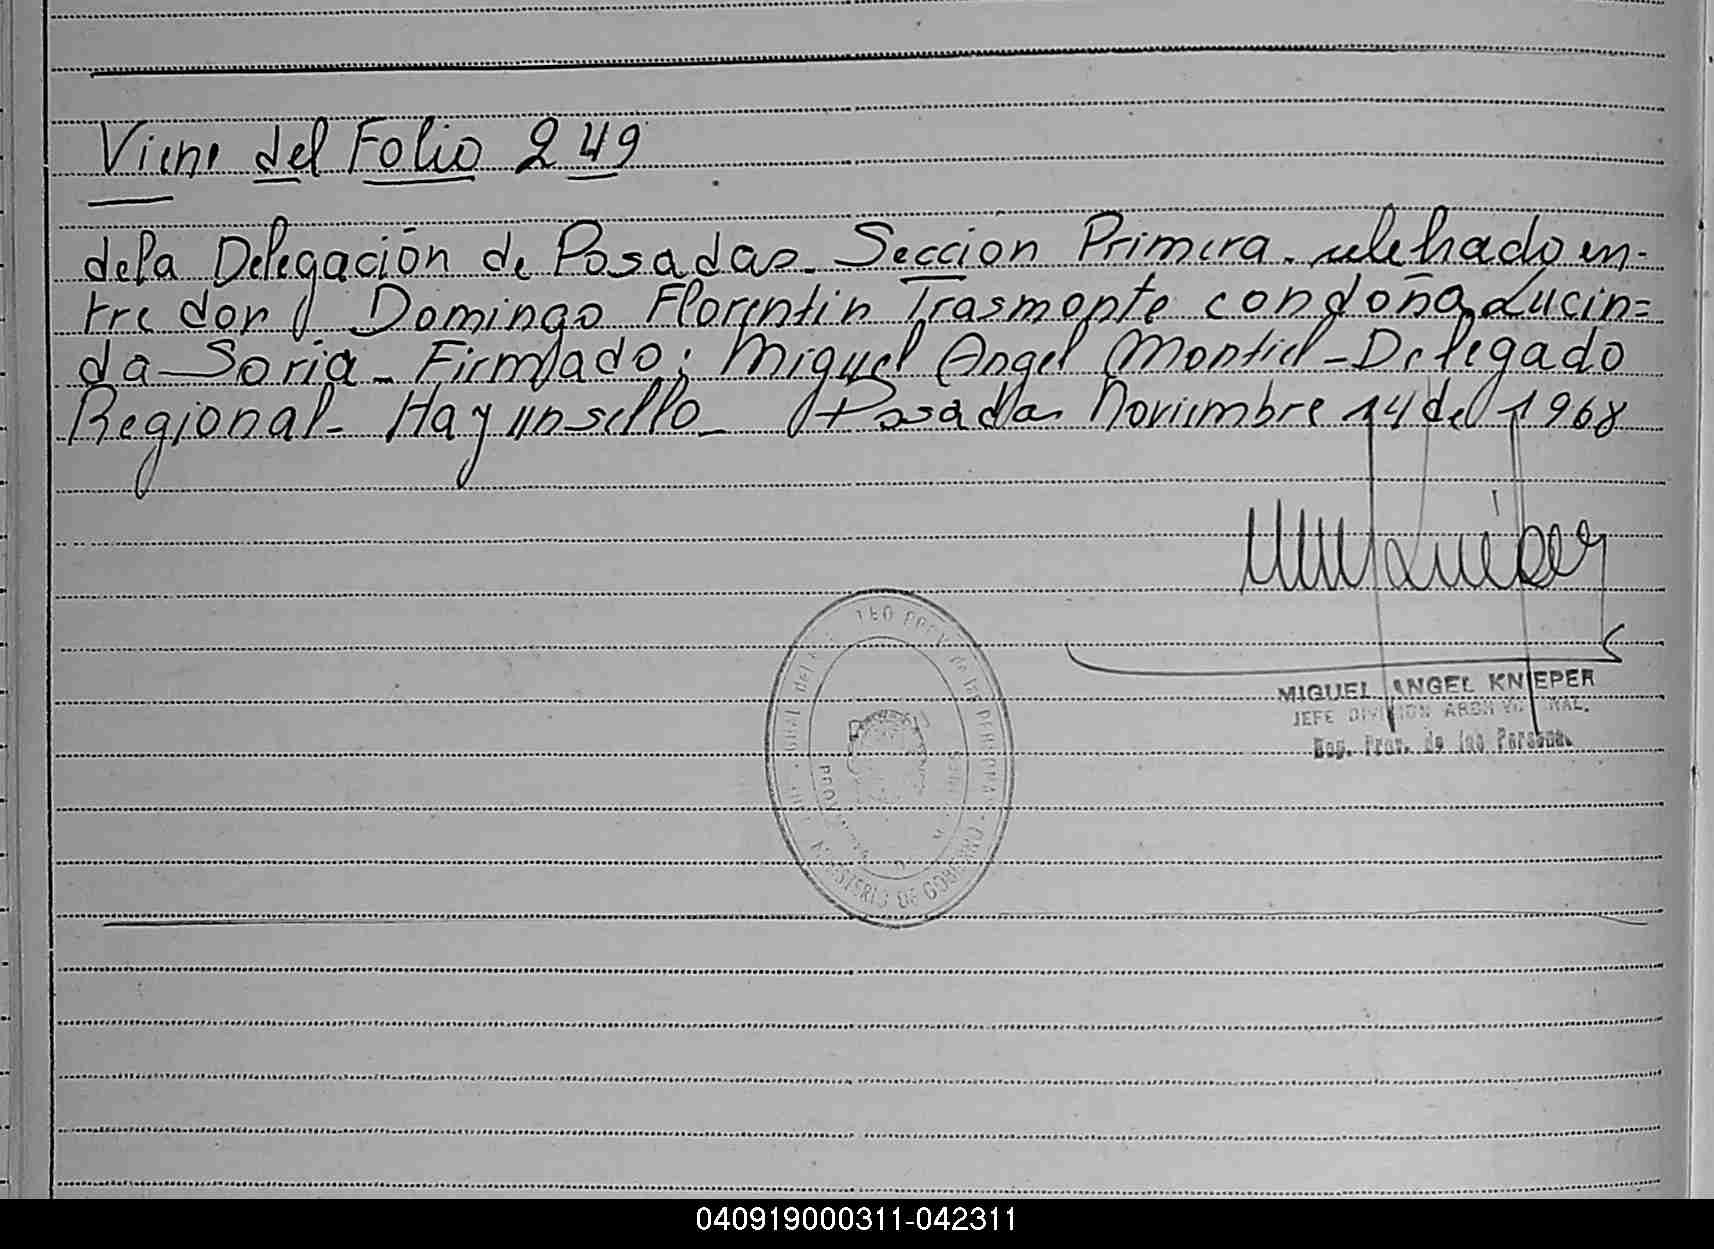 Viene del Folio 249
de la Delegación de Posadas. Sección Primera. celebrado en-
tre don Domingo Florentin Trasmonte con doña Lucin=
da Soria - Firmado: Miguel Angel Montiel - Delegado
Regional - Hay un sello - Posadas Noviembre 14 de 1968
MIGUEL ANGEL KNIEPER
JEFE DIVISION
Reg. Prov. de las Personas
MINISTERIO DE GOBIERNO
040919000311-042311